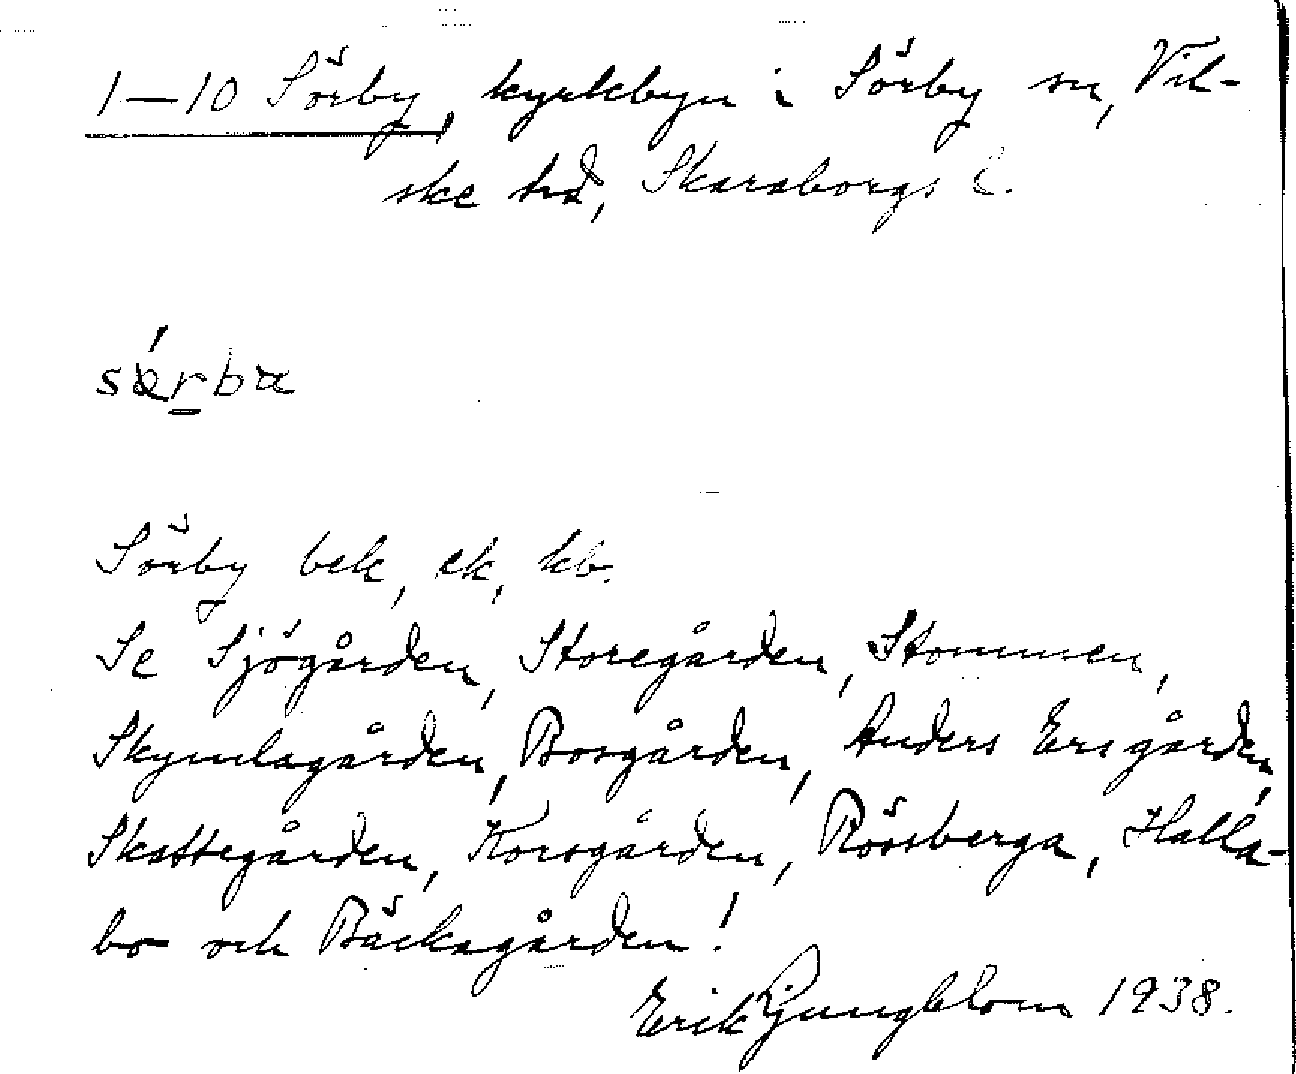 1–10 Sörby, kyrkbyn i Sörby sn, Vil-
ske hd, Skaraborgs l.
Sörby bek, ek, kb.
Se Sjögården, Storegården, Stommen,
Skymlagården, Bosgården, Anders Ersgården,
Skattegården, Korsgården, Rössberga, Halla-
bo och Bäckagården!
Erik Ljungblom 1938.